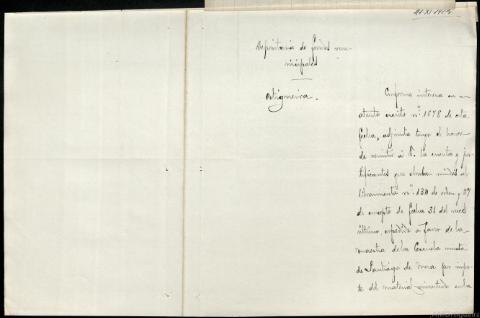 Depositaría de fondos mu-
nicipales
Ortigueira.
Conforme interesa en su
atento escrito nº 1878 de esta
fecha, adjunta tengo el honor
de remitir á V. la cuenta y jus-
tificantes que estaban unidos al
libramiento nº 130 de orden y 27
de concepto de fecha 31 del mes
último, expedido á favor de la
maestra de la Escuela mixta
de Santiago de Mera por impor-
te del material suministrado